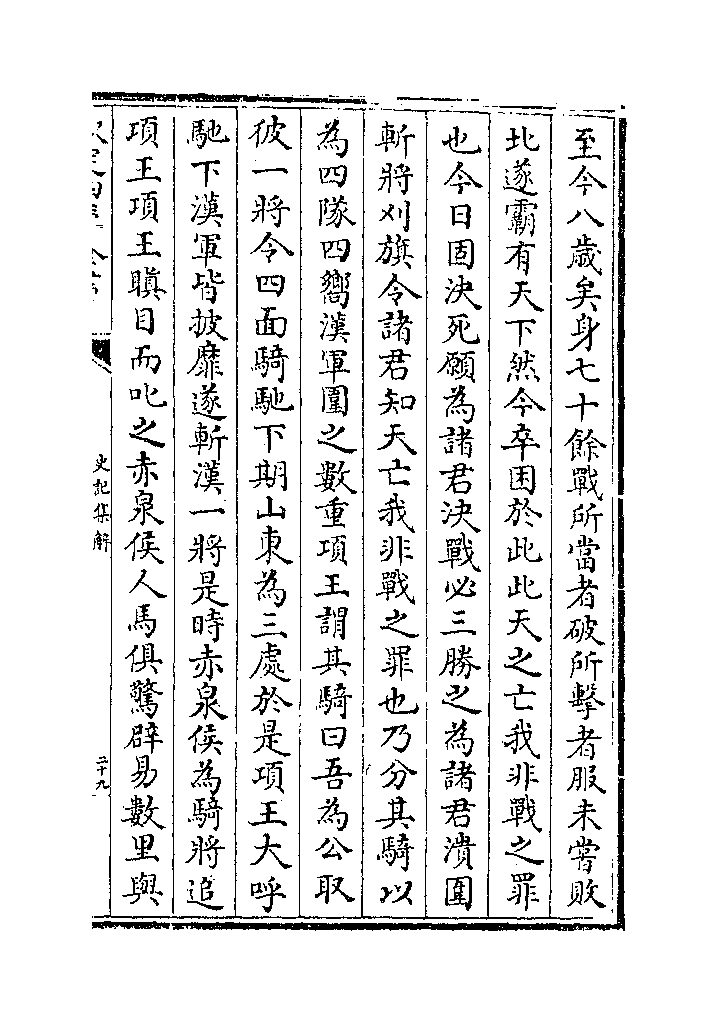 至今八歳矣身七十餘戰所當者破所擊者服未嘗敗
北遂霸有天下然今卒困於此此天之亡我非戰之罪
也今日固決死願為諸君決戰必三勝之為諸君潰圍
斬將刈旗令諸君知天亡我非戰之罪也乃分其騎以
為四隊四嚮漢軍圍之數重項王謂其騎曰吾為公取
彼一將令四面騎馳下期山東為三處於是項王大呼
馳下漢軍皆披靡遂斬漢一將是時赤泉侯為騎將追
項王項王瞋目而叱之赤泉侯人馬俱驚辟易數里與
史記集解
二十九